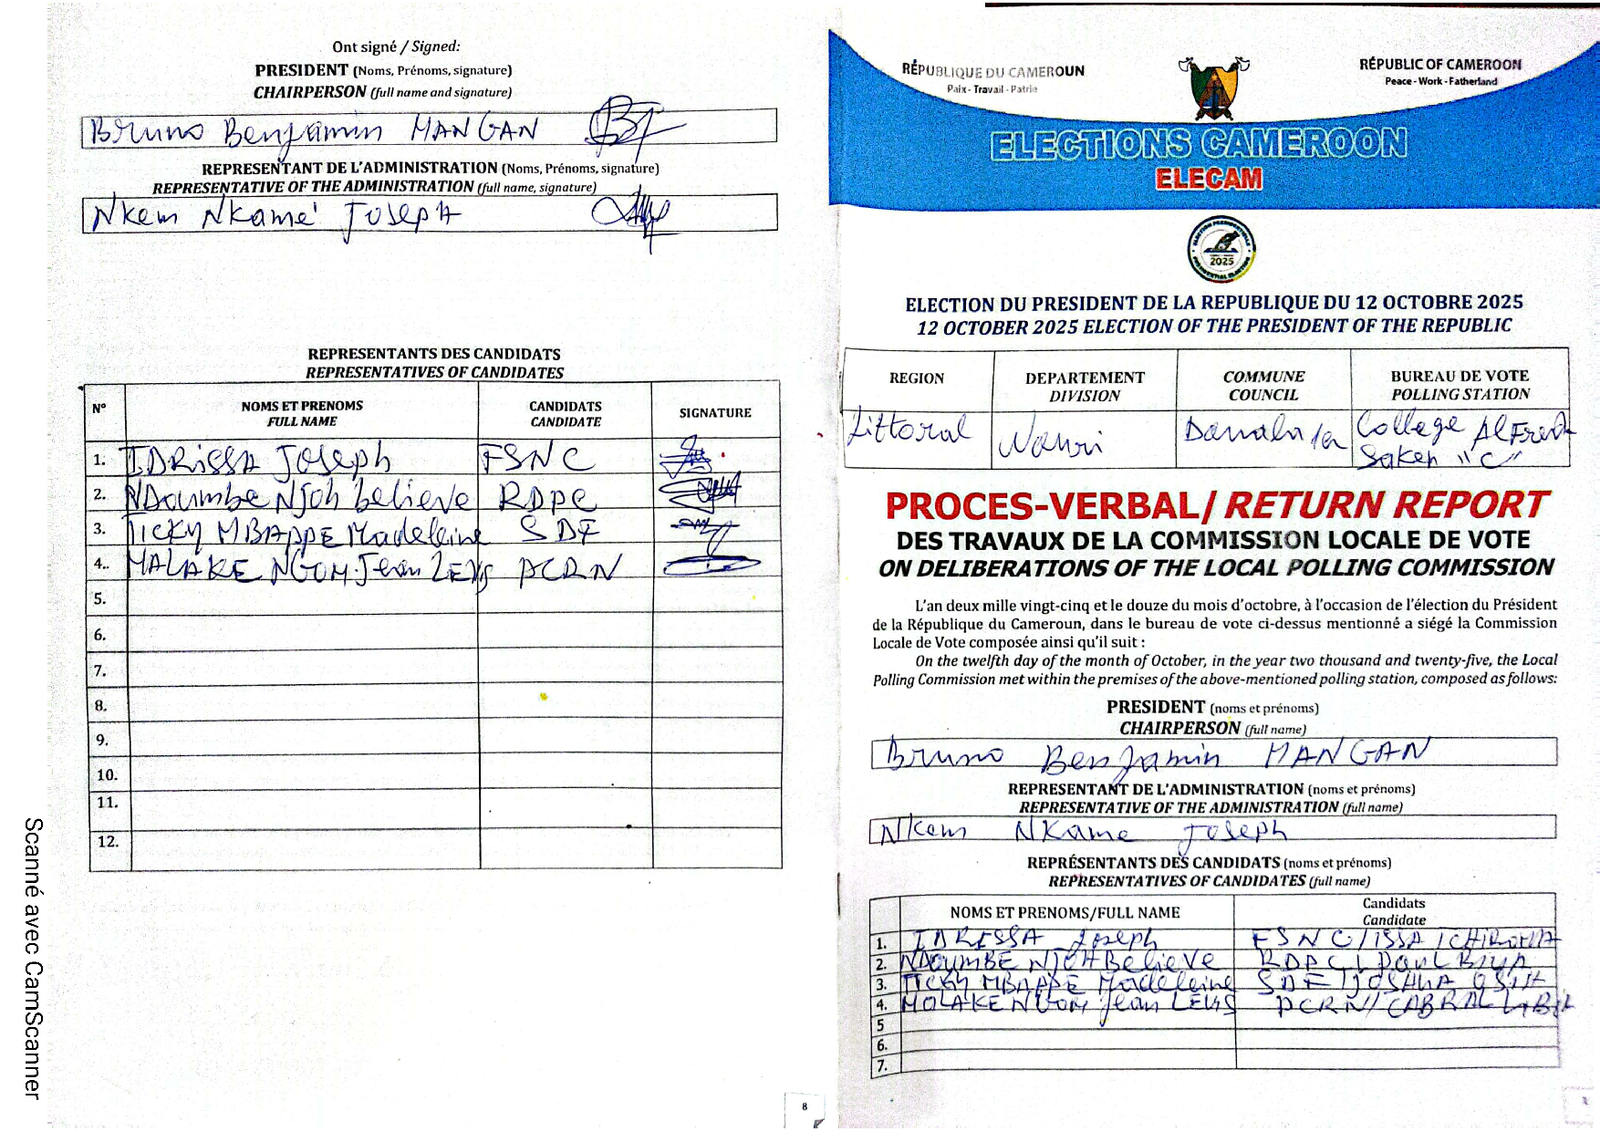 Ont signé / Signed:
PRESIDENT (Noms, Prénoms, signature)
CHAIRPERSON (full name and signature)
Bruno Benjamin MANGAN
REPRESENTANT DE L'ADMINISTRATION (Noms, Prénoms, signature)
REPRESENTATIVE OF THE ADMINISTRATION (full name, signature)
Nkem Nkamé Joseph
REPRESENTANTS DES CANDIDATS
REPRESENTATIVES OF CANDIDATES
N° NOMS ET PRENOMS FULL NAME CANDIDATS CANDIDATE SIGNATURE
1. IDRISSA Joseph FSNC
2. NDoumbe NJoh believe RDPC
3. TICKY MBAPPE Madeleine SDF
4. MALAKE NGOM Jean PCRN
5.
6.
7.
8.
9.
10.
11.
12.
8
Scanné avec CamScanner
RÉPUBLIQUE DU CAMEROUN
Paix - Travail - Patrie
RÉPUBLIC OF CAMEROON
Peace - Work - Fatherland
ELECTIONS CAMEROON
ELECAM
2025
ELECTION DU PRESIDENT DE LA REPUBLIQUE DU 12 OCTOBRE 2025
12 OCTOBER 2025 ELECTION OF THE PRESIDENT OF THE REPUBLIC
REGION DEPARTEMENT DIVISION COMMUNE COUNCIL BUREAU DE VOTE POLLING STATION
Littoral Wouri College Alfred
Saker "C"
PROCES-VERBAL/ RETURN REPORT
DES TRAVAUX DE LA COMMISSION LOCALE DE VOTE
ON DELIBERATIONS OF THE LOCAL POLLING COMMISSION
L'an deux mille vingt-cinq et le douze du mois d'octobre, à l'occasion de l'élection du Président
de la République du Cameroun, dans le bureau de vote ci-dessus mentionné a siégé la Commission
Locale de Vote composée ainsi qu'il suit :
On the twelfth day of the month of October, in the year two thousand and twenty-five, the Local
Polling Commission met within the premises of the above-mentioned polling station, composed as follows:
PRESIDENT (noms et prénoms)
CHAIRPERSON (full name)
Bruno Benjamin MANGAN
REPRESENTANT DE L'ADMINISTRATION (noms et prénoms)
REPRESENTATIVE OF THE ADMINISTRATION (full name)
Nkem NKame Joseph
REPRÉSENTANTS DES CANDIDATS (noms et prénoms)
REPRESENTATIVES OF CANDIDATES (full name)
NOMS ET PRENOMS/FULL NAME Candidats Candidate
1. IDRISSA Joseph FSNC/ISSA TCHIROMA
2. NDOUMBE NJOH Believe RDPC/ Paul BIYA
3. TICKY MBAPPE Madeleine SDF/JOSHUA OSIH
4. MOLAKE NGOM Jean PCRN/CABRAL
5
6.
7.